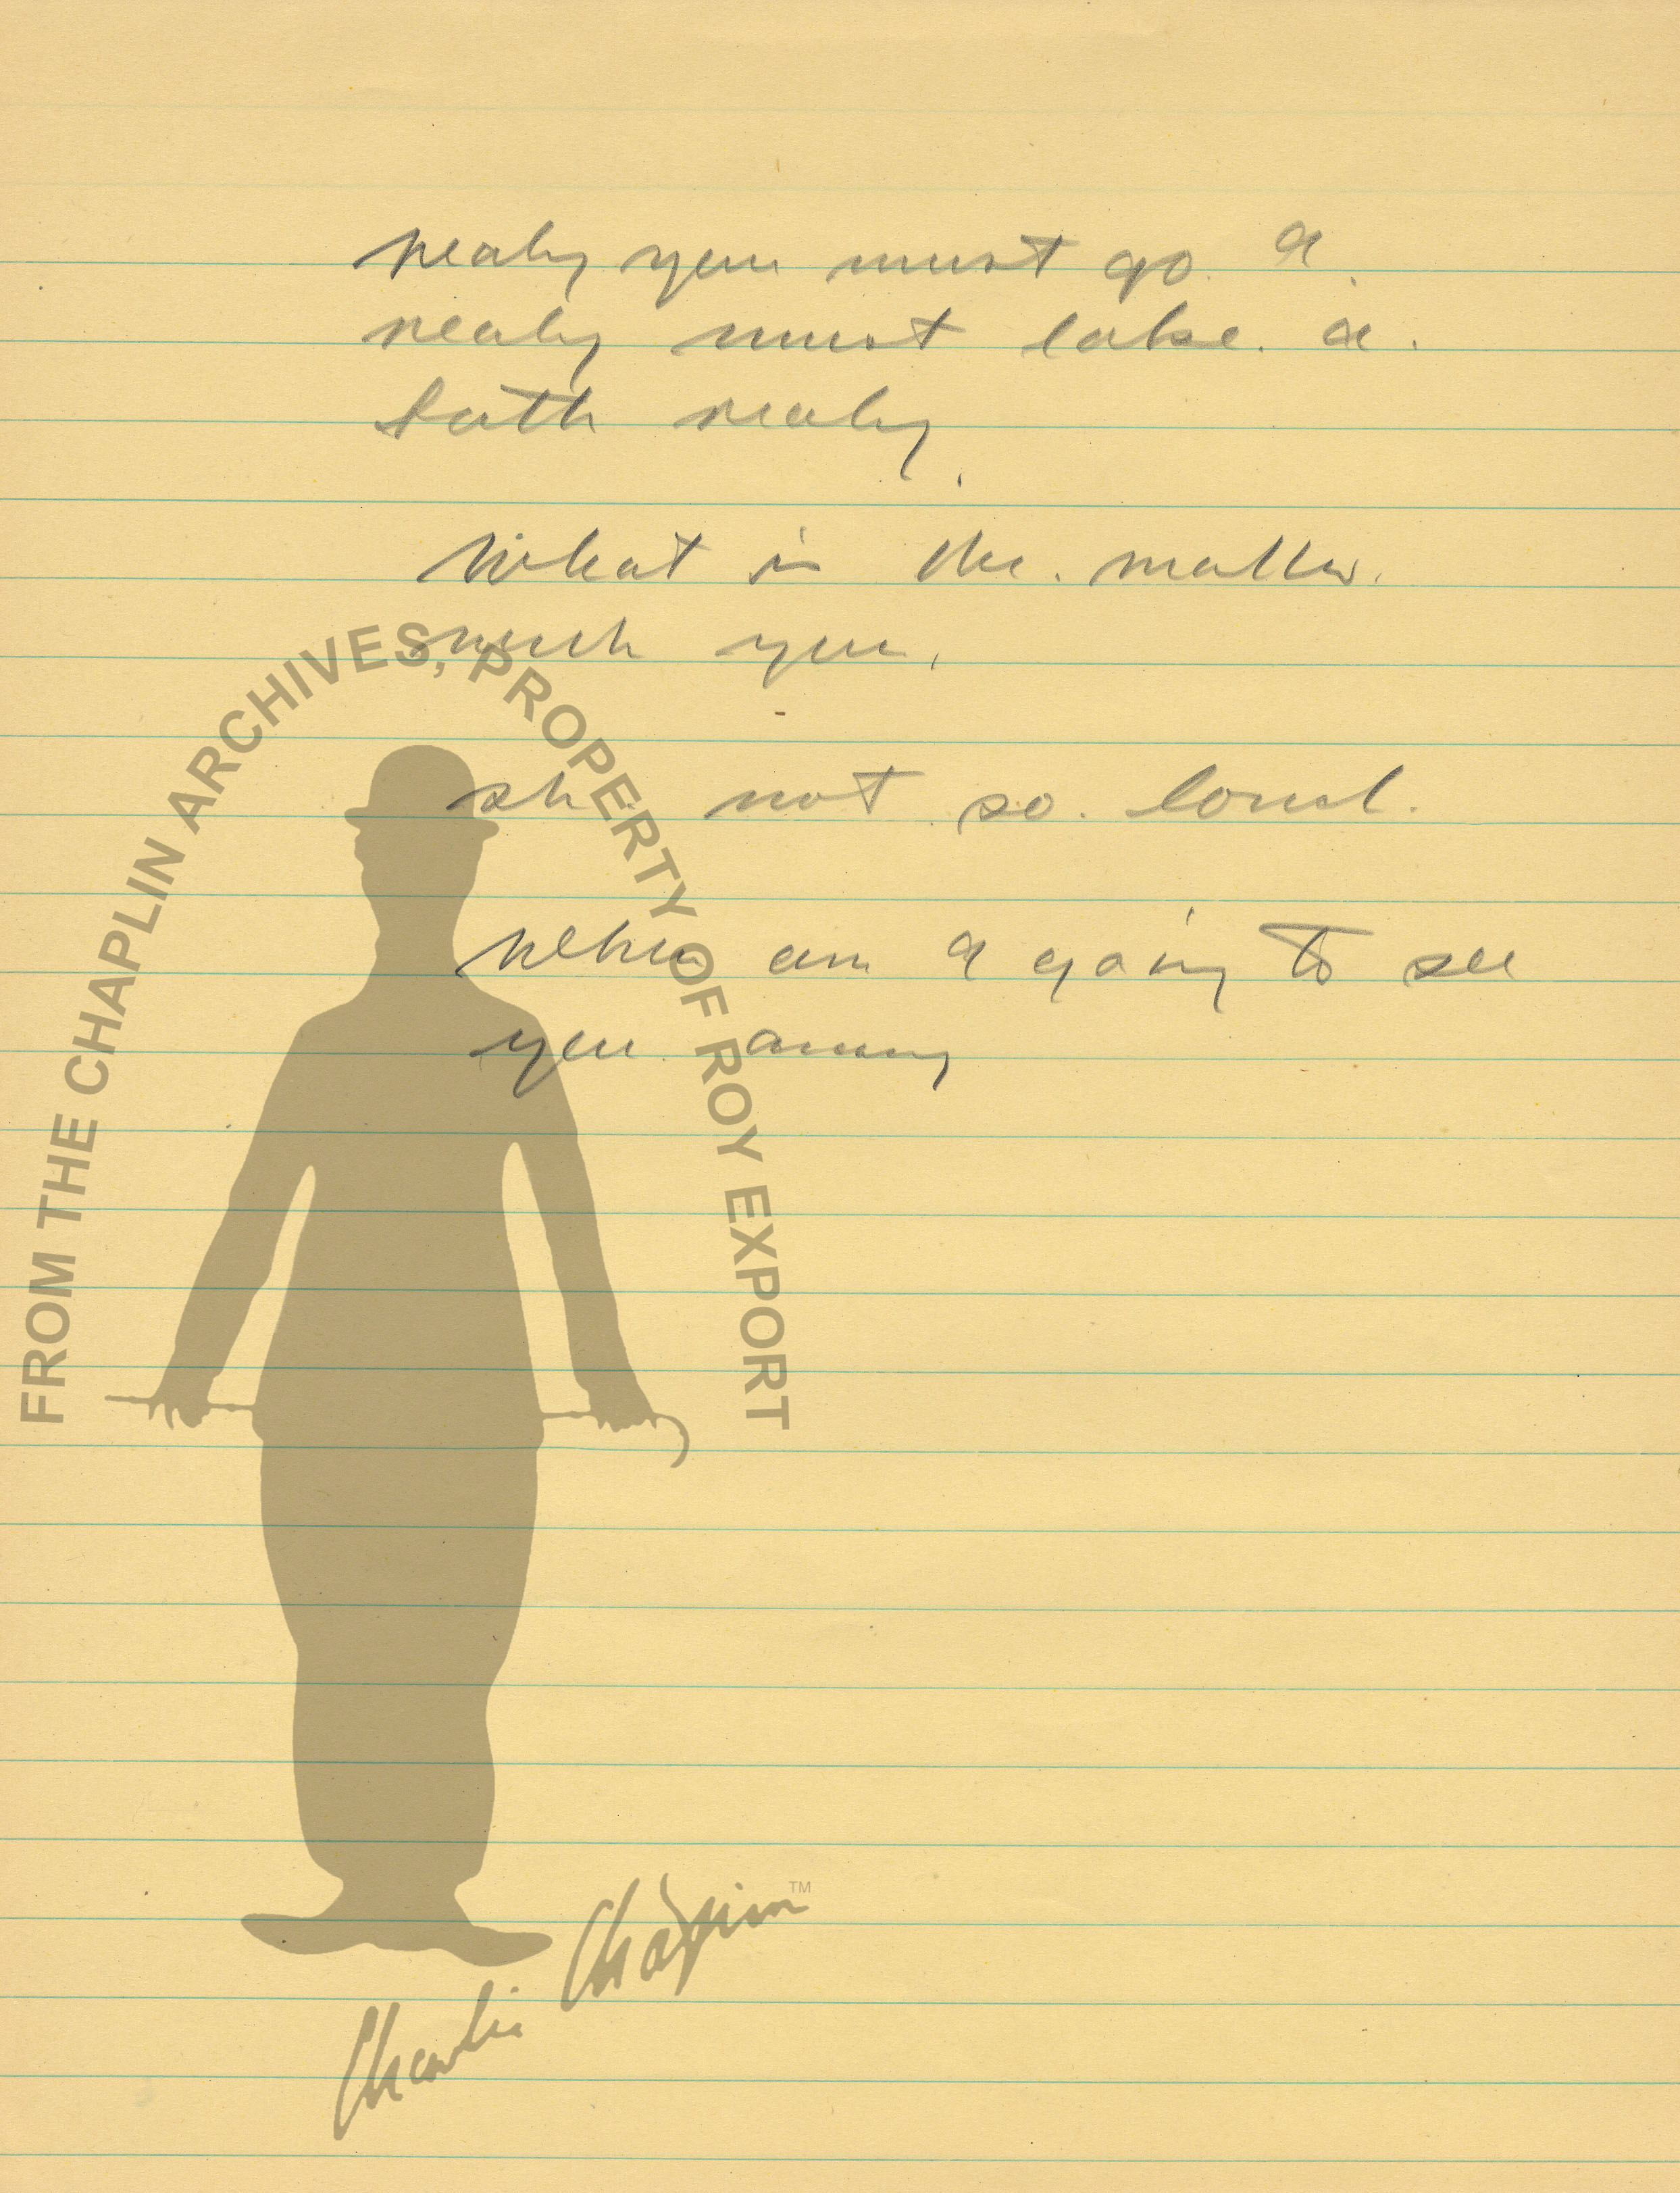 realy you must go. I.
realy must take. a.
bath realy.
What is the. matter.
with you.
sh. not so. loud.
when am I going to see
you.
FROM THE CHAPLIN ARCHIVES, PROPERTY OF ROY EXPORT
Charlie Chaplin™